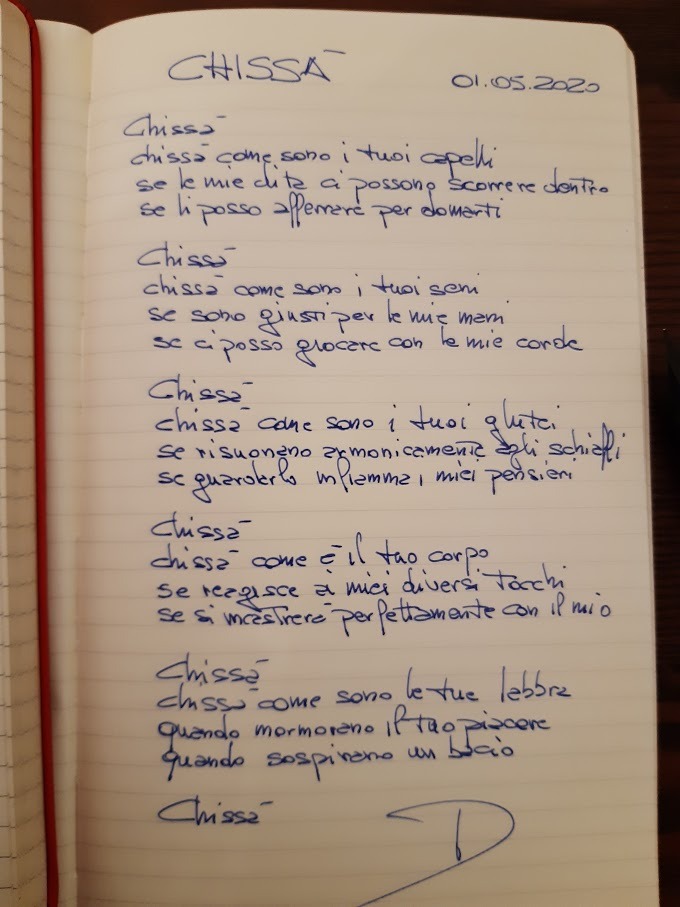 CHISSÀ
01.05.2020
Chissà
chissà come sono i tuoi capelli
se le mie dita ci possono scorrere dentro
se li posso afferrare per domarti
Chissà
chissà come sono i tuoi seni
se sono giusti per le mie mani
se ci posso giocare con le mie corde
Chissà
chissà come sono i tuoi glutei
se risuonano armonicamente agli schiaffi
se guardarlo infiamma i miei pensieri
Chissà
chissà come è il tuo corpo
se reagisce ai miei diversi tocchi
se si incastrerà perfettamente con il mio
Chissà
chissà come sono le tue labbra
quando mormorano il tuo piacere
quando sospirano un bacio
Chissà
D